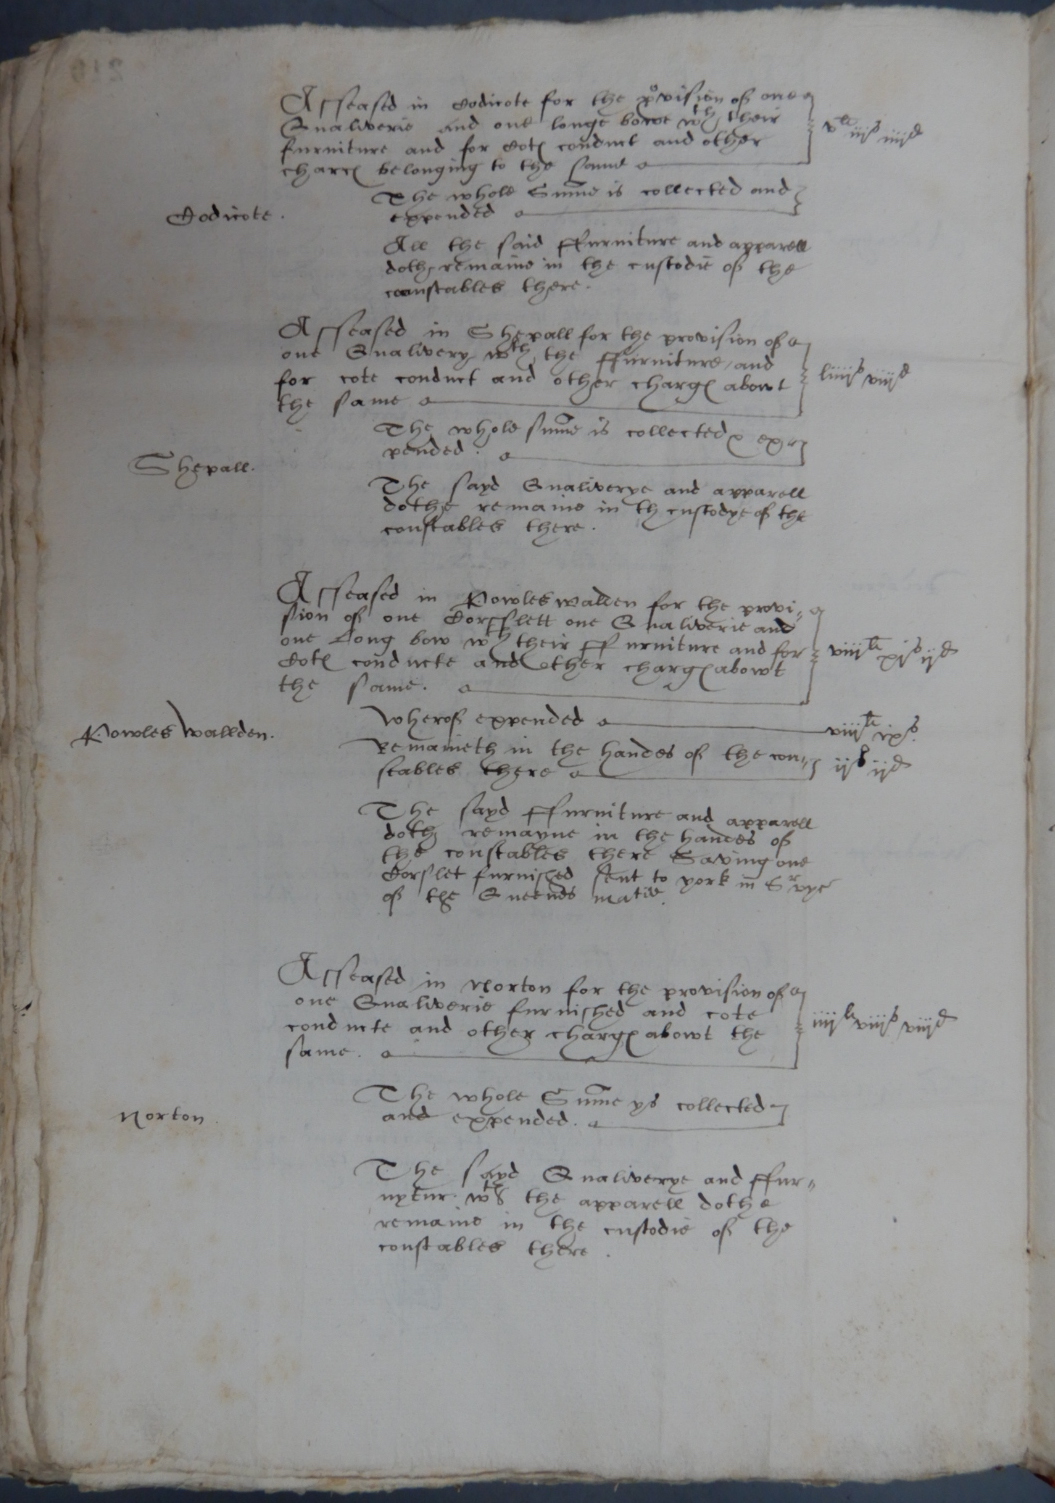 Asseased in Codicote for the pvision of one
Qualiverie and one longe bowe wth their
furniture and for Cote conduct and other
charges belonging to the same
vli iijs iiijd
The whole Summe is collected and
expended
Codicote.
All the said ffurniture and apparell
doth remaine in the custodie of the
constables there.
Asseased in Shepall for the provision of
one Qualivery wth the ffurniture and
for cote conduct and other charges abowt
the same
liiijs viijd
The whole summe is collected & ex
pended.
Shepall.
The sayd Qualiverye and apparell
dothe remaine in th custodye of the
constables there.
Asseased in Powles walden for the provi=
sion of one Corsslett one Qualiverie and
one Long bow wth their ffurniture and for
Cote conducte and other charges abowt
the same.
viijli xjs ijd
Wherof expended
viijli ixs.
Powles Wallden.
Remaineth in the handes of the con=
stables there
ijs ijd
The sayd ffurniture and apparell
doth remayne in the handes of
the constables there Saving one
Corslet furnished sent to york in Srvyce
of the Queenes matie.
Asseased in Norton for the provision of
one Qualiverie furnished and cote
conducte and other charges abowt the
same.
iiijli viijs viijd
The whole Summe ys collected
and expended.
Norton.
The sayd Qualiverye and ffur=
nytur wth the apparell dothe
remaine in the custodie of the
constables there.